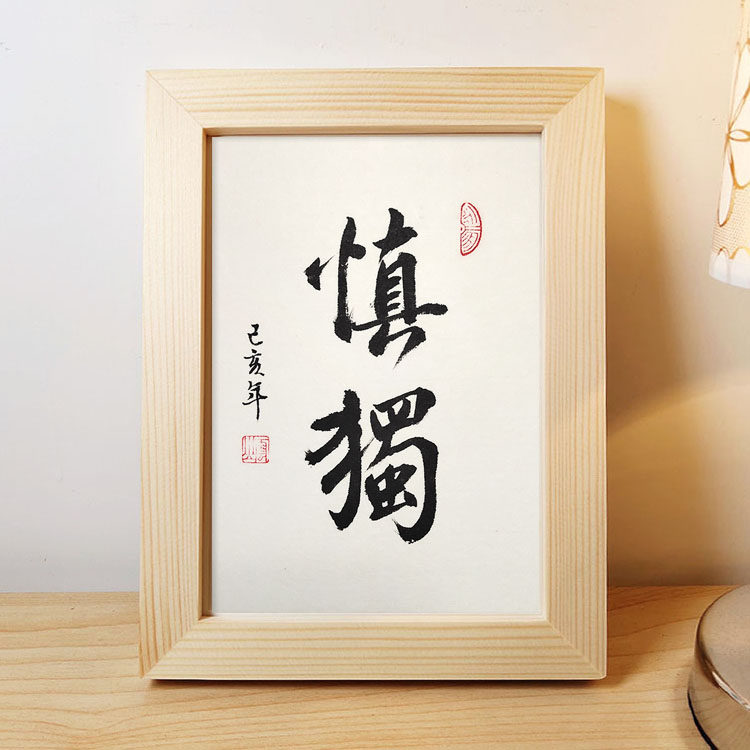 慎獨
己亥年